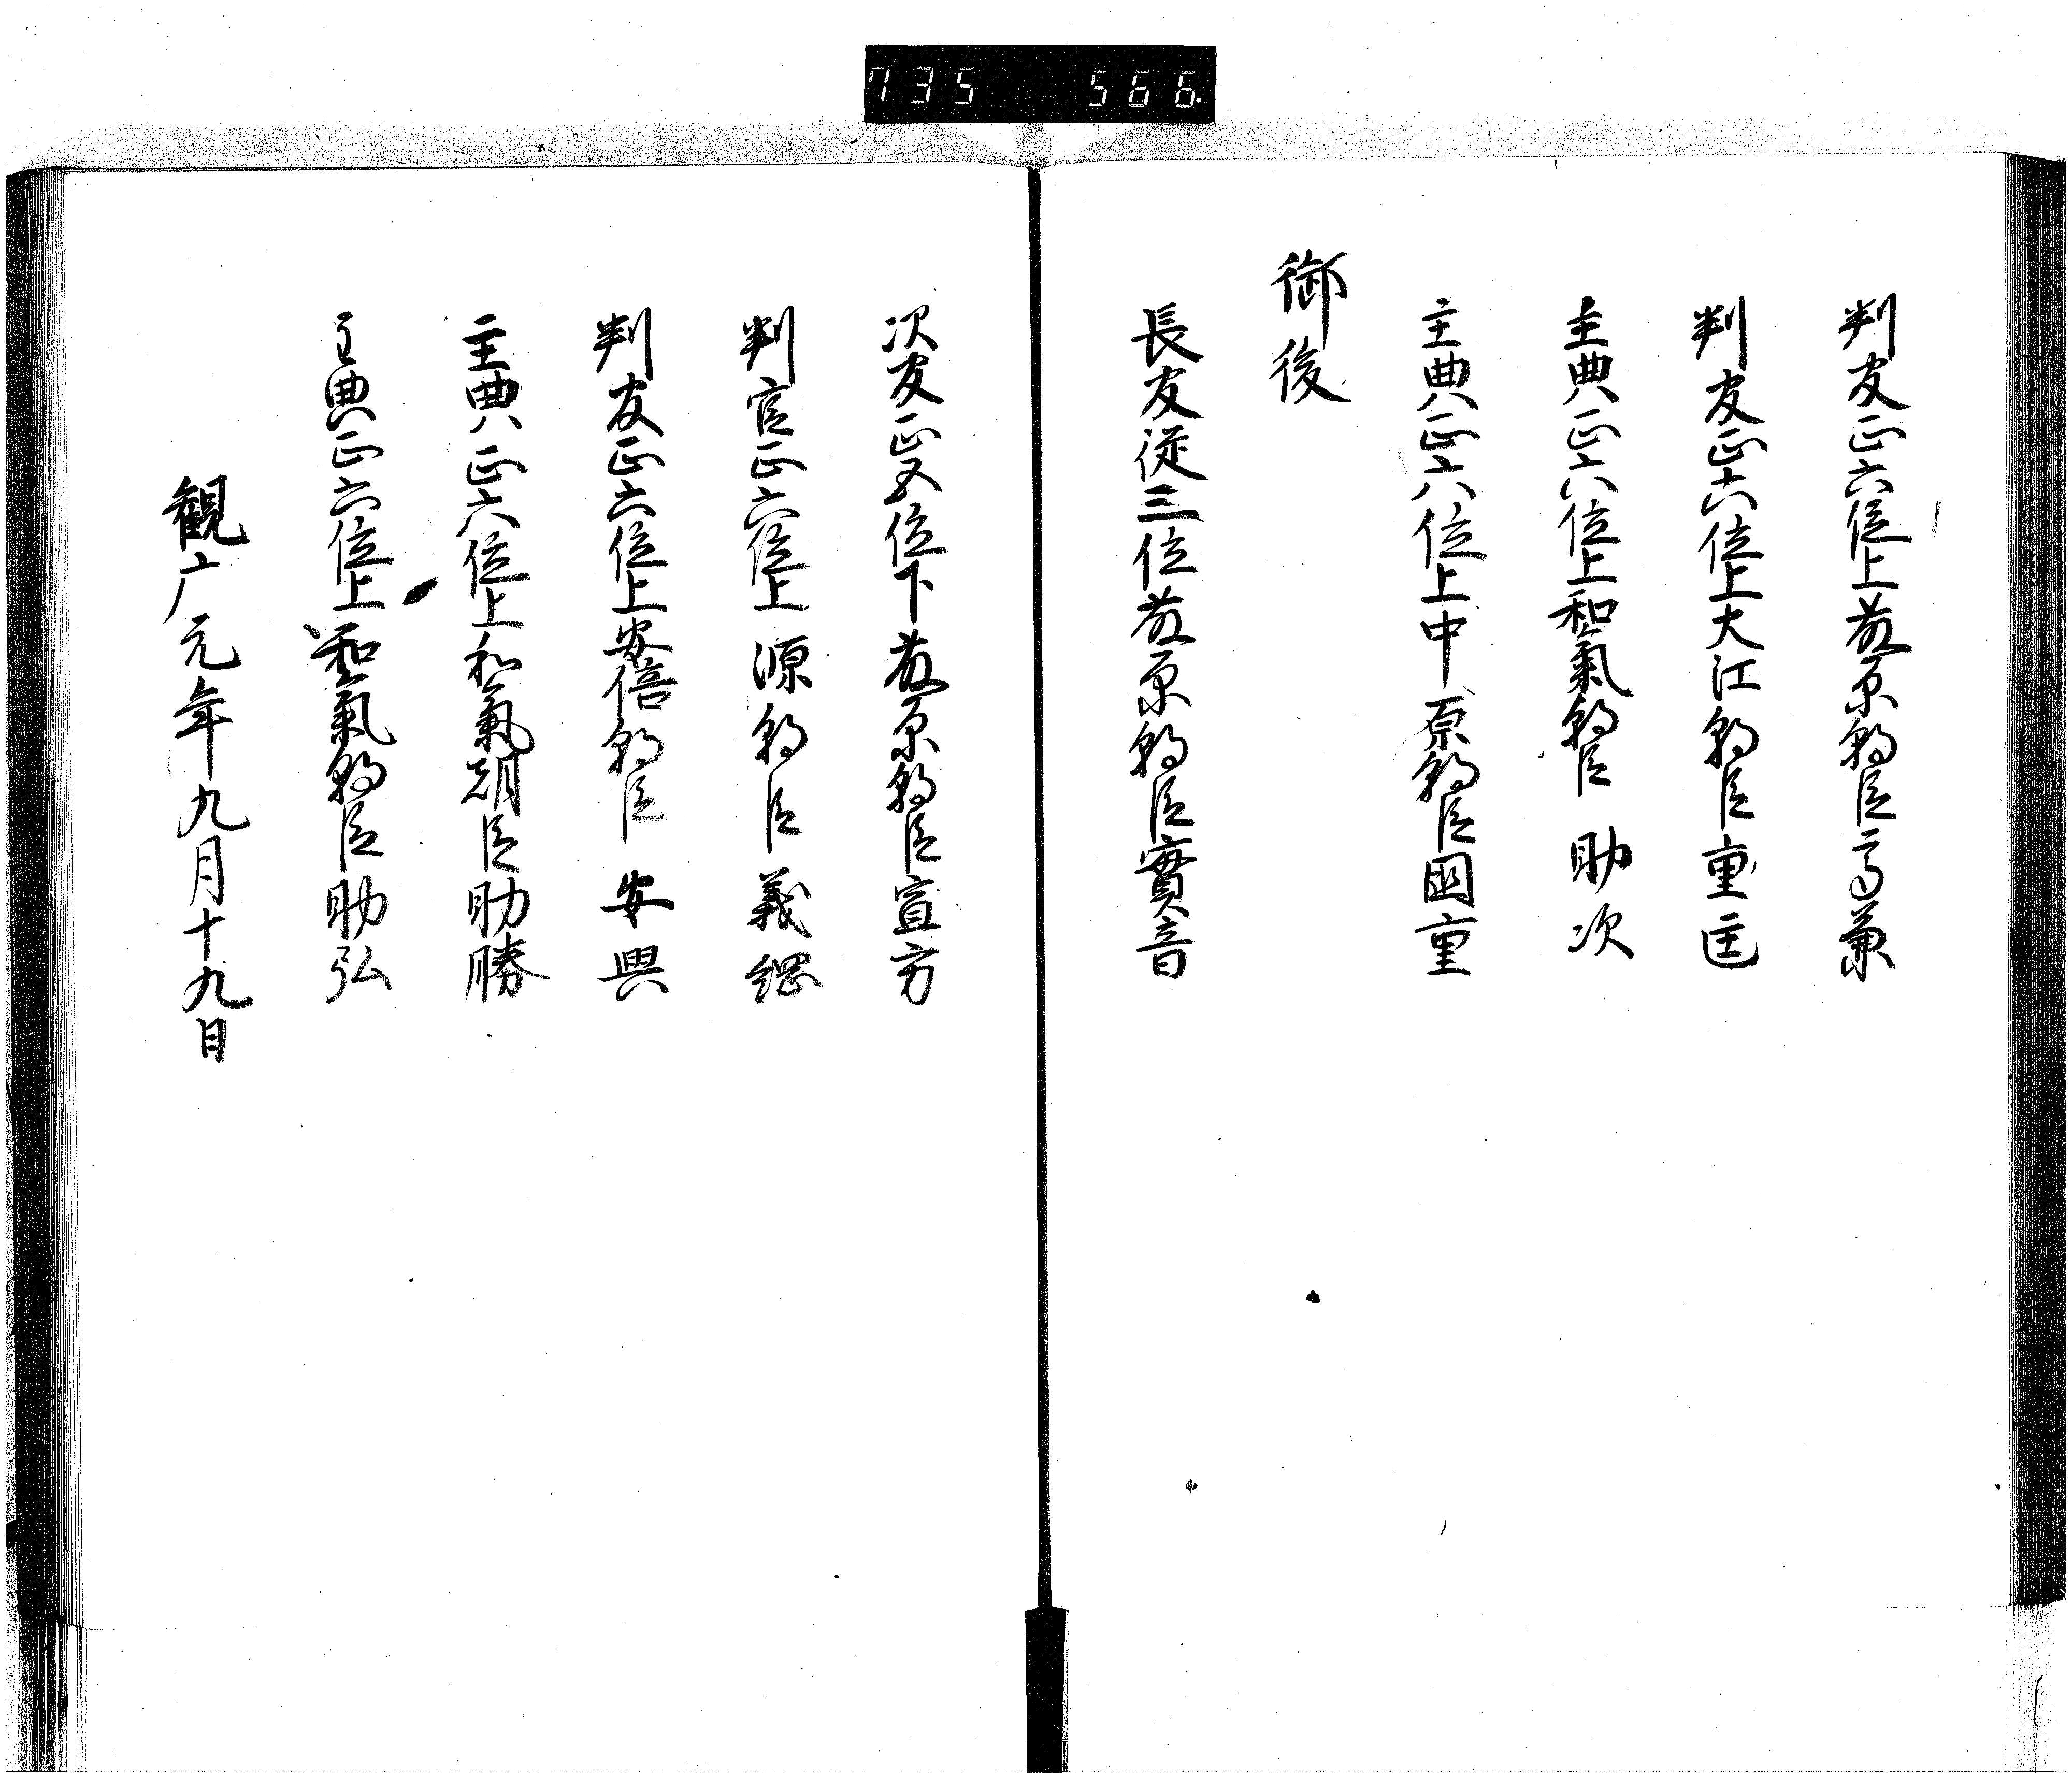 735 566
判官正六位上藤原朝臣高兼
判官正六位上大江朝臣重匡
主典正六位上和氣朝臣助次
主典正六位上中原朝臣國重
御後
長官従三位藤原朝臣實音
次官正五位下藤原朝臣宣方
判官正六位上源朝臣義綱
判官正六位上安倍朝臣安興
主典正六位上和氣朝臣助勝
主典正六位上和氣朝臣助弘
観广元年九月十九日